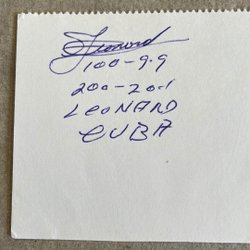 Leonard
100-9.9
200-20.1
LEONARD
CUBA